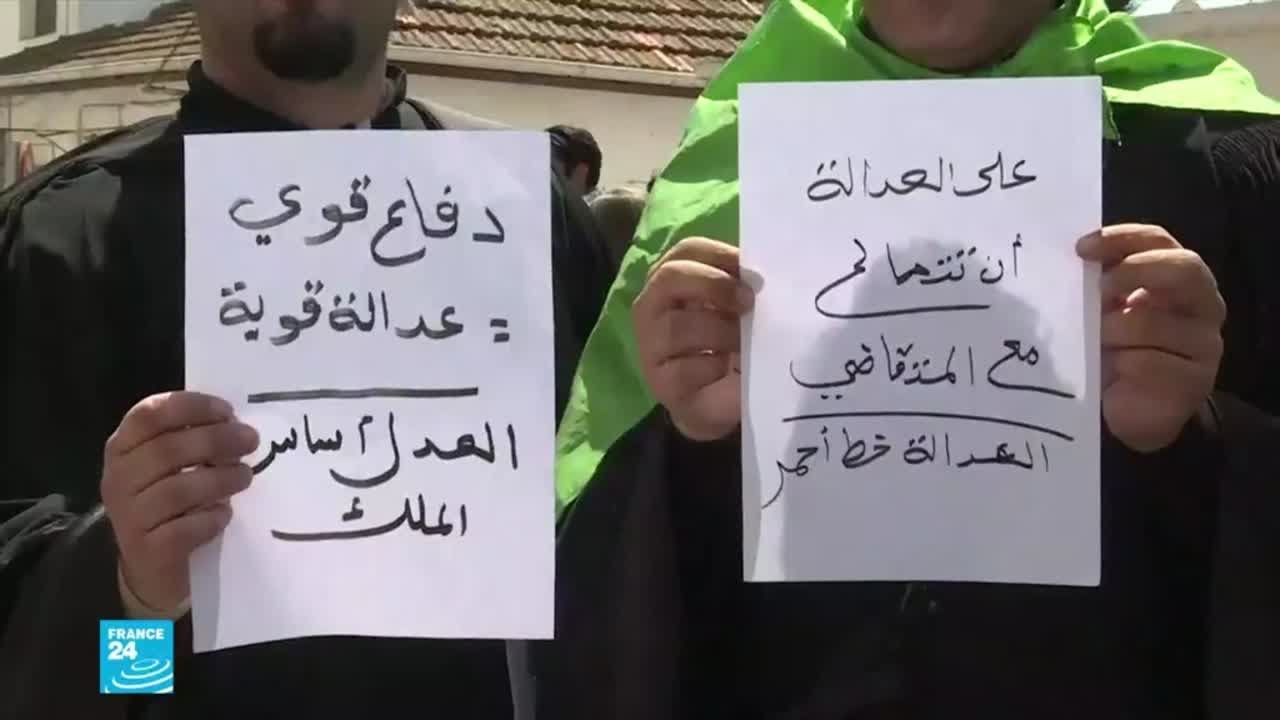 دفاع قوي
= عدالة قوية
العدل أساس
الملك
على العدالة
أن تتصالح
مع المتقاضي
العدالة خط أحمر
FRANCE
24